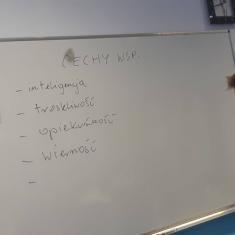 CECHY WSP.
- inteligencja
- troskliwość
- opiekuńczość
- wierność
-